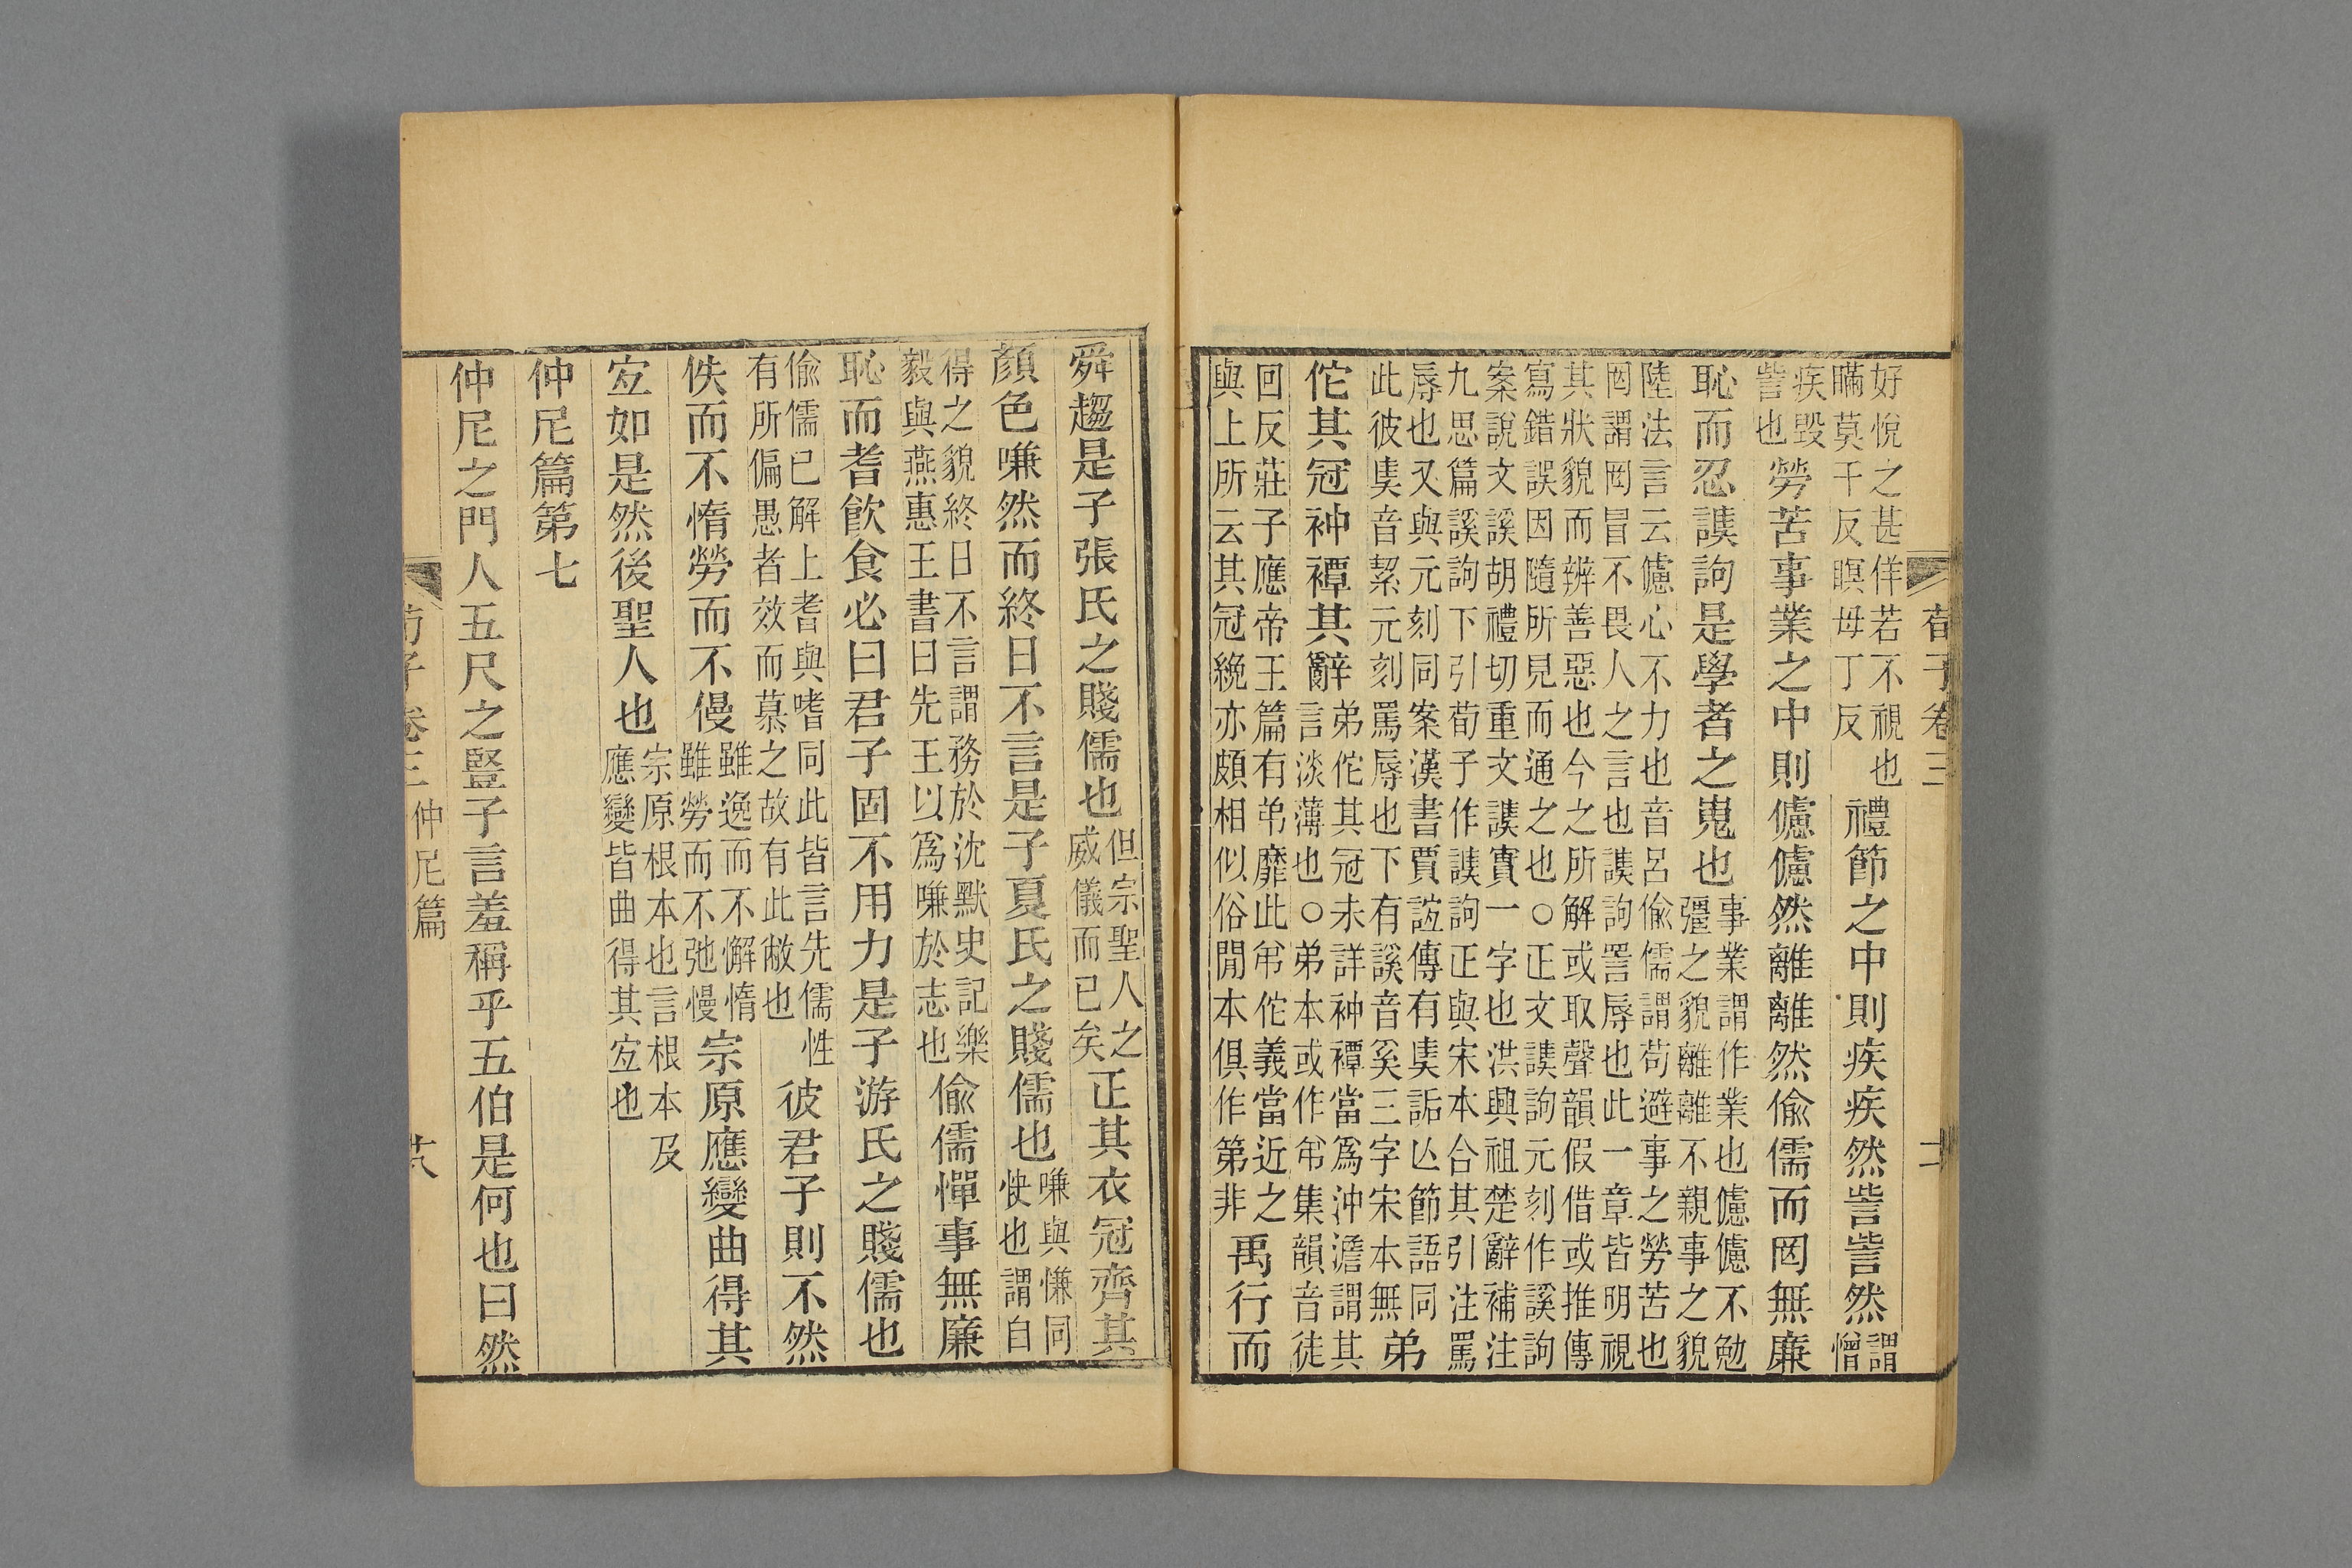 荀子卷三
好悅之甚佯若不視也
瞞莫干反瞑毋丁反
禮節之中則疾疾然訾訾然
謂
憎
疾毀
訾也
勞苦事業之中則儢儢然離離然偷儒而罔無廉
恥而忍𧫦詢是學者之嵬也
事業謂作業也儢儢不勉
彊之貌離離不親事之貌
陸法言云儢心不力也音呂偷儒謂苟避事之勞苦也
罔謂罔冒不畏人之言也𧫦詢詈辱也此一章皆明視
其狀貌而辨善惡也今之所解或取聲韻假借或推傳
寫錯誤因隨所見而通之也○正文𧫦詢元刻作謑詢
案說文謑胡禮切重文𧫦實一字也洪興祖楚辭補注
九思篇謑詢下引荀子作𧫦詢正與宋本合其引注罵
辱也又與元刻同案漢書賈誼傳有奊詬亾節語同
此彼奊音絜元刻罵辱也下有謑音奚三字宋本無
弟
佗其冠衶禫其辭
弟佗其冠未詳衶禫當爲沖澹謂其
言淡薄也○弟本或作帇集韻音徒
回反莊子應帝王篇有弟靡此帇佗義當近之
與上所云其冠絻亦頗相似俗閒本俱作第非
禹行而
舜趨是子張氏之賤儒也
但宗聖人之
威儀而已矣
正其衣冠齊其
顏色嗛然而終日不言是子夏氏之賤儒也
嗛與慊同
快也謂自
得之貌終日不言謂務於沈默史記樂
毅與燕惠王書曰先王以爲嗛於志也
偷儒憚事無廉
恥而耆飮食必曰君子固不用力是子游氏之賤儒也
偷儒已解上耆與嗜同此皆言先儒性
有所偏愚者效而慕之故有此敝也
彼君子則不然
佚而不惰勞而不僈
雖逸而不懈惰
雖勞而不弛慢
宗原應變曲得其
宐如是然後聖人也
宗原根本也言根本及
應變皆曲得其宐也
仲尼篇第七
仲尼之門人五尺之豎子言羞稱乎五伯是何也曰然
荀子卷三
仲尼篇